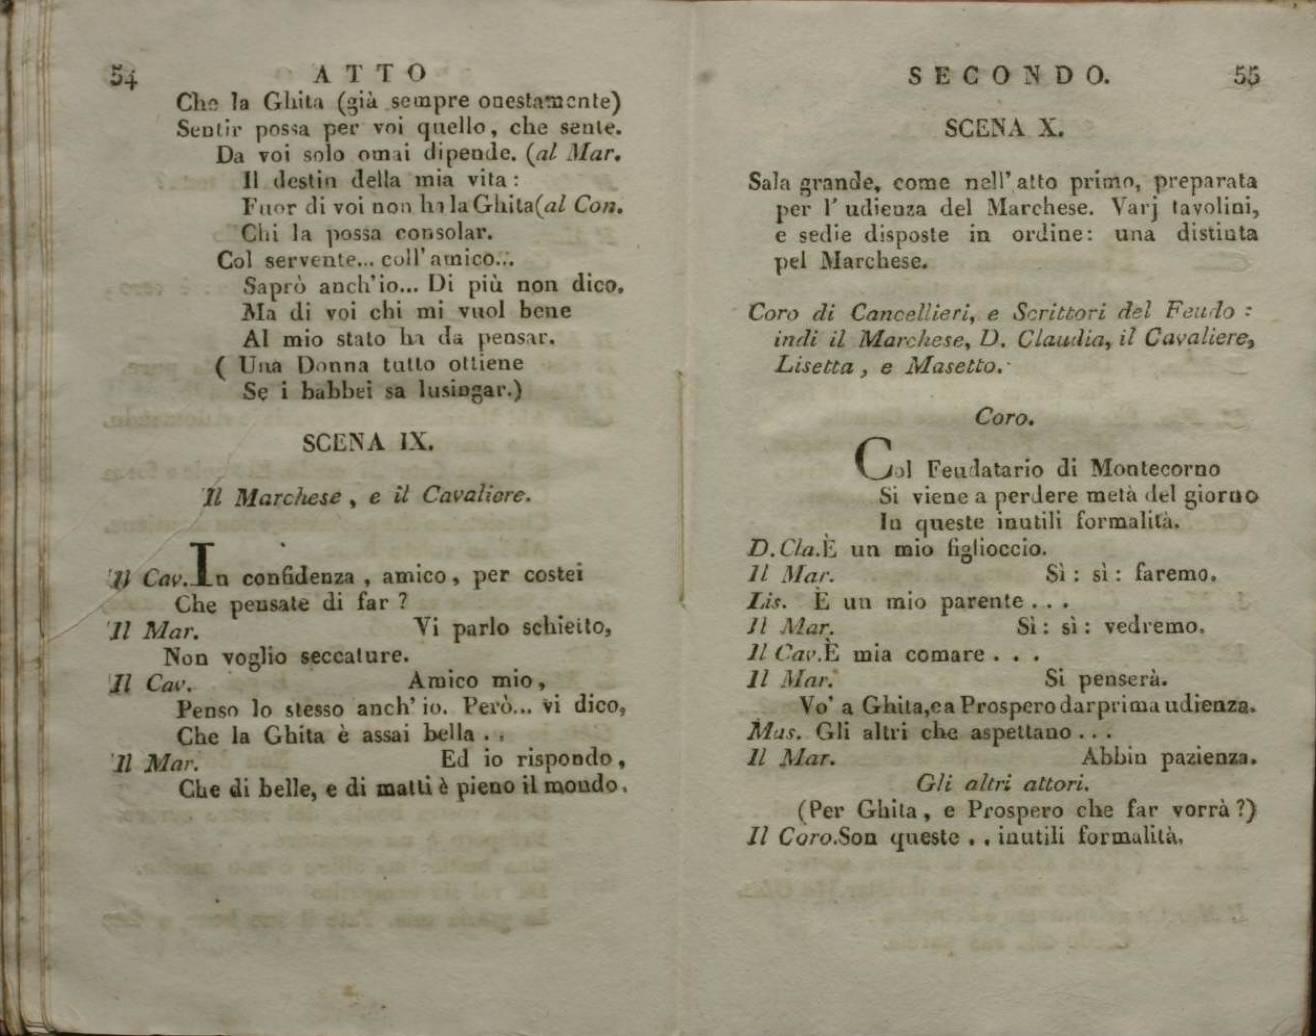 54 ATTO
Che la Ghita (già sempre onestamente)
Sentir possa per voi quello, che sente.
Da voi solo omai dipende. (al Mar.
Il destin della mia vita:
Fuor di voi non ha la Ghita (al Con.
Chi la possa consolar.
Col servente... coll' amico...
Saprò anch'io... Di più non dico,
Ma di voi chi mi vuol bene
Al mio stato ha da pensar.
( Una Donna tutto ottiene
Se i babbei sa lusingar.)
SCENA IX.
Il Marchese, e il Cavaliere.
Il Cav. In confidenza, amico, per costei
Che pensate di far?
Il Mar. Vi parlo schietto,
Non voglio seccature.
Il Cav. Amico mio,
Penso lo stesso anch' io. Però... vi dico,
Che la Ghita è assai bella . .
Il Mar. Ed io rispondo,
Che di belle, e di matti è pieno il mondo.
SECONDO. 55
SCENA X.
Sala grande, come nell' atto primo, preparata
per l' udienza del Marchese. Varj tavolini,
e sedie disposte in ordine: una distinta
pel Marchese.
Coro di Cancellieri, e Scrittori del Feudo:
indi il Marchese, D. Claudia, il Cavaliere,
Lisetta, e Masetto.
Coro.
Col Feudatario di Montecorno
Si viene a perdere metà del giorno
In queste inutili formalità.
D. Cla. È un mio figlioccio.
Il Mar. Sì: sì: faremo.
Lis. È un mio parente . . .
Il Mar. Sì: sì: vedremo.
Il Cav. È mia comare . . .
Il Mar. Si penserà.
Vo' a Ghita, e a Prospero dar prima udienza.
Mas. Gli altri che aspettano . . .
Il Mar. Abbin pazienza.
Gli altri attori.
(Per Ghita, e Prospero che far vorrà?)
Il Coro. Son queste . . inutili formalità.